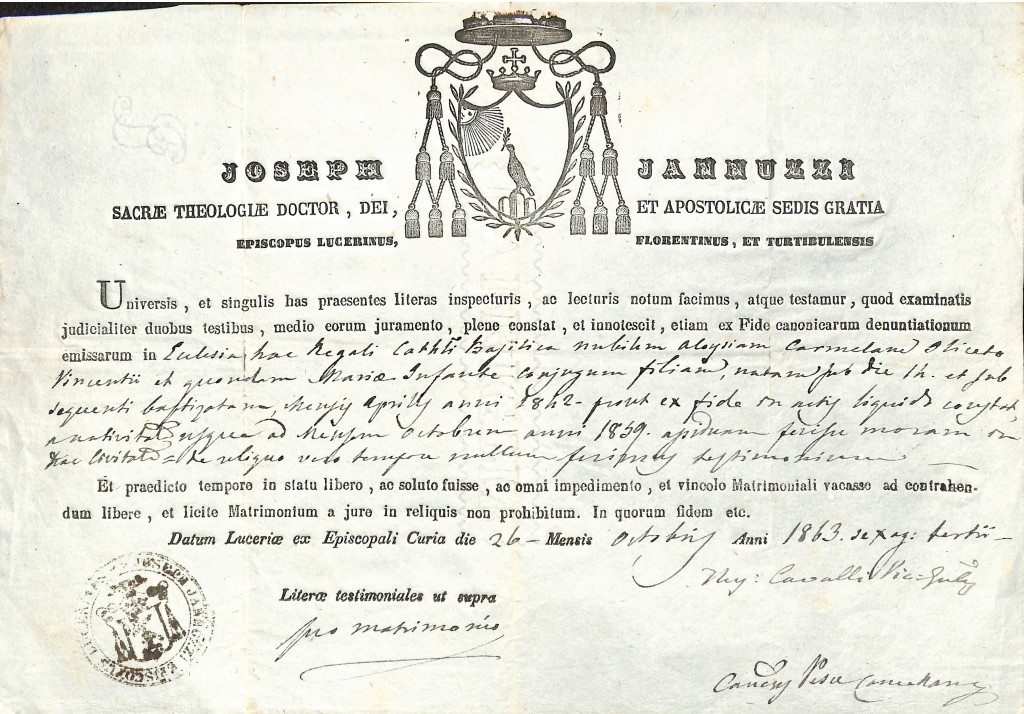 JOSEPH JANNUZZI
SACRÆ THEOLOGIÆ DOCTOR , DEI, ET APOSTOLICÆ SEDIS GRATIA
EPISCOPUS LUCERINUS, FLORENTINUS, ET TURTIBULENSIS
Universis , et singulis has praesentes literas inspecturis , ac lecturis notum facimus , atque testamur , quod examinatis
judicialiter duobus testibus , medio eorum juramento , plene constat , et innotescit , etiam ex Fide canonicarum denuntiationum
emissarum in Eclesia hac Regali Cathli Basilica nubilem Aloysiam Carmelam Oliceto
Vincentii et quondam Mariæ Infante conjugum filiam, natam sub die 14. et sub
sequenti baptizatam, Mensis Aprilis anni 1842- prout ex fide in actis liquido constat,
a nativitate usque ad Mensem Octobrem anni 1859. apiduam fecisse moram in
hac Civitate = de reliquo vero tempore nullum ferimus testimonium
Et praedicto tempore in statu libero , ac soluto fuisse , ac omni impedimento , et vincolo Matrimoniali vacasse ad contrahen-
dum libere , et licite Matrimonium a jure in reliquis non prohibitum. In quorum fidem etc.
Datum Luceriæ ex Episcopali Curia die 26- Mensis Octobris Anni 1863. sexag: tertii-
Cavalli Vic:
Literæ testimoniales ut supra
pro matrimonio
JOSEPH JANNUZZI EPISCOPUS